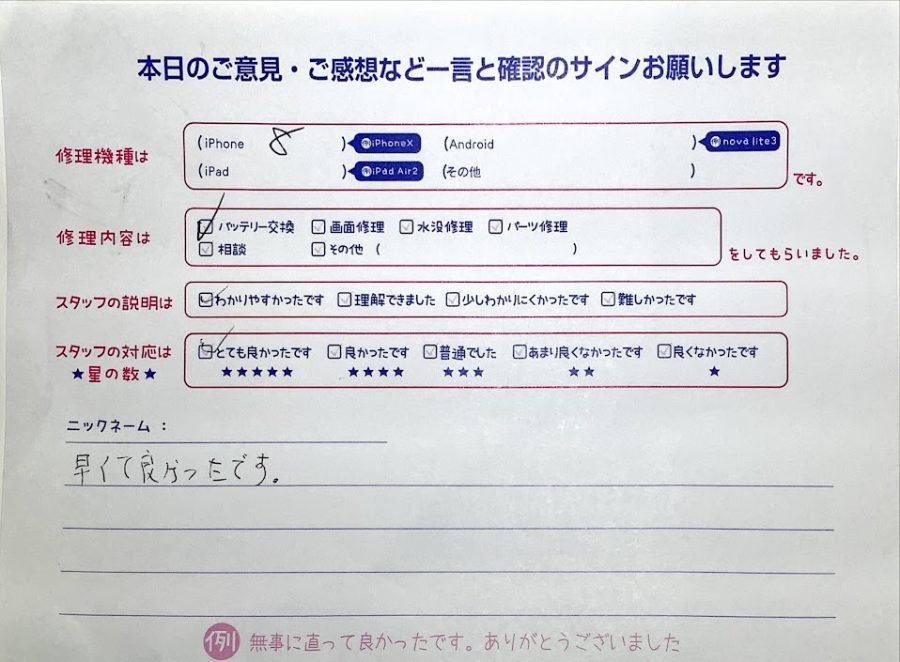 本日のご意見・ご感想など一言と確認のサインお願いします
修理機種は (iPhone 8 ) 例iPhoneX (Android ) 例nova lite3
(iPad ) 例iPad Air2 (その他 ) です。
修理内容は バッテリー交換 画面修理 水没修理 パーツ修理
相談 その他 ( ) をしてもらいました。
スタッフの説明は わかりやすかったです 理解できました 少しわかりにくかったです 難しかったです
スタッフの対応は とても良かったです 良かったです 普通でした あまり良くなかったです 良くなかったです
★星の数★ ★★★★★ ★★★★ ★★★ ★★ ★
ニックネーム:
早くて良かったです。
例 無事に直って良かったです。ありがとうございました